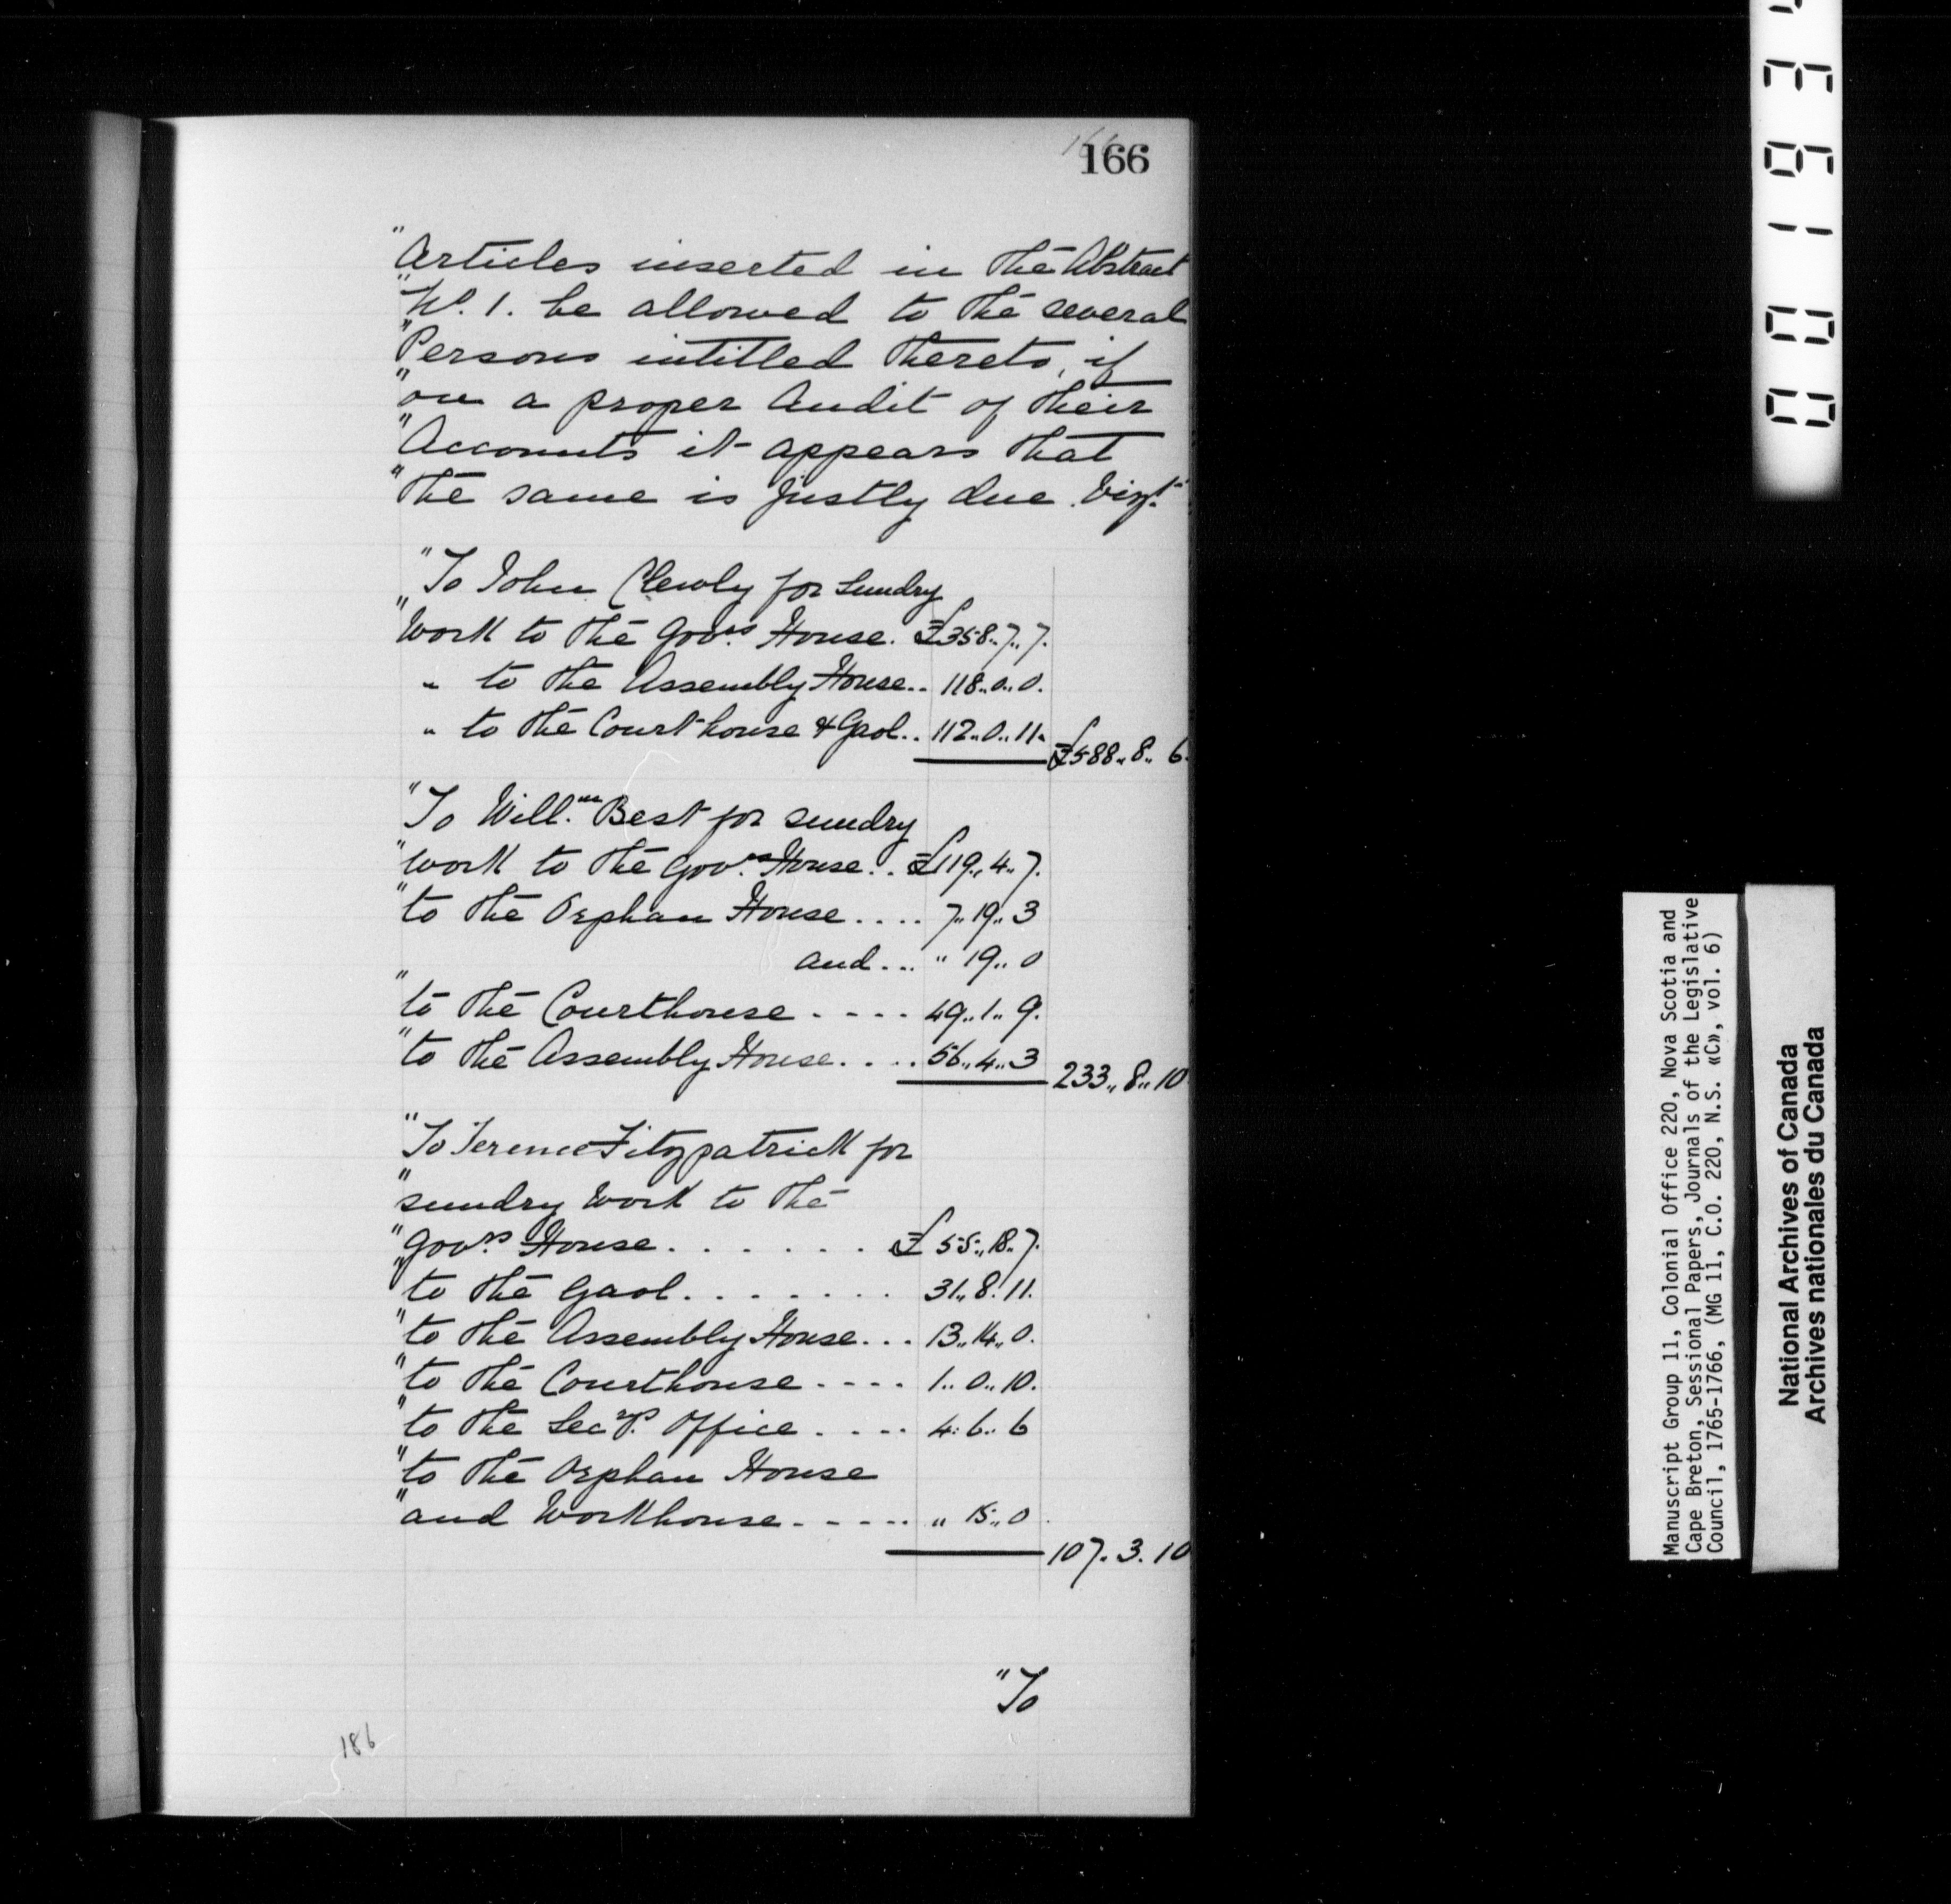 166
166
"Articles inserted in the Abstract
"No. 1. be allowed to the several
"Persons intitled thereto, if
"on a proper Audit of their
"Accounts it appears that
"the same is justly due. Vizt.
"To John Clewly for sundry
"Work to the Govrs. House. £358..7..7.
" to the Assembly House.. 118..0..0.
" to the Courthouse & Gaol.. 112..0..11. £588..8..6.
"To Willm. Best for sundry
"work to the Govrs. House... £119..4..7.
"to the Orphan House.... 7..19..3
and... " 19..0
"to the Courthouse.... 49..1..9.
"to the Assembly House.... 56..4..3 233..8..10
"To Terence Fitzpatrick for
"sundry work to the
"Govrs. House....... £55..18..7.
"to the Gaol....... 31..8.11.
"to the Assembly House... 13..14..0.
"to the Courthouse.... 1..0..10.
"to the Secry. Office.... 4:6..6
"to the Orphan House
"and Workhouse..... " 15..0.
107.3.10
"To
186
Manuscript Group 11, Colonial Office 220, Nova Scotia and
Cape Breton, Sessional Papers, Journals of the Legislative
Council, 1765-1766, (MG 11, C.O. 220, N.S. «C», vol. 6)
National Archives of Canada
Archives nationales du Canada